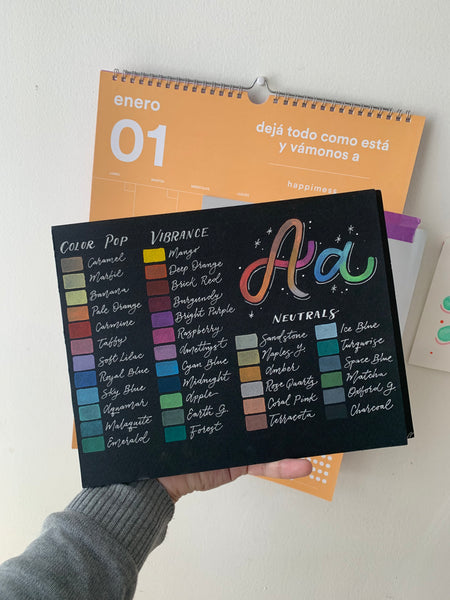 enero
01
dejá todo como está
y vámonos a
happimess
COLOR POP
Caramel
Marfil
Banana
Pale Orange
Carmine
Taffy
Soft Lilac
Royal Blue
Sky Blue
Aquamar
Malaquite
Emerald
VIBRANCE
Mango
Deep Orange
Brick Red
Burgundy
Bright Purple
Raspberry
Amethyst
Cyan Blue
Midnight
Apple
Earth G.
Forest
Aa
NEUTRALS
Sandstone
Naples Y.
Amber
Rose Quartz
Coral Pink
Terracota
Ice Blue
Turquoise
Space Blue
Matcha
Oxford G.
Charcoal